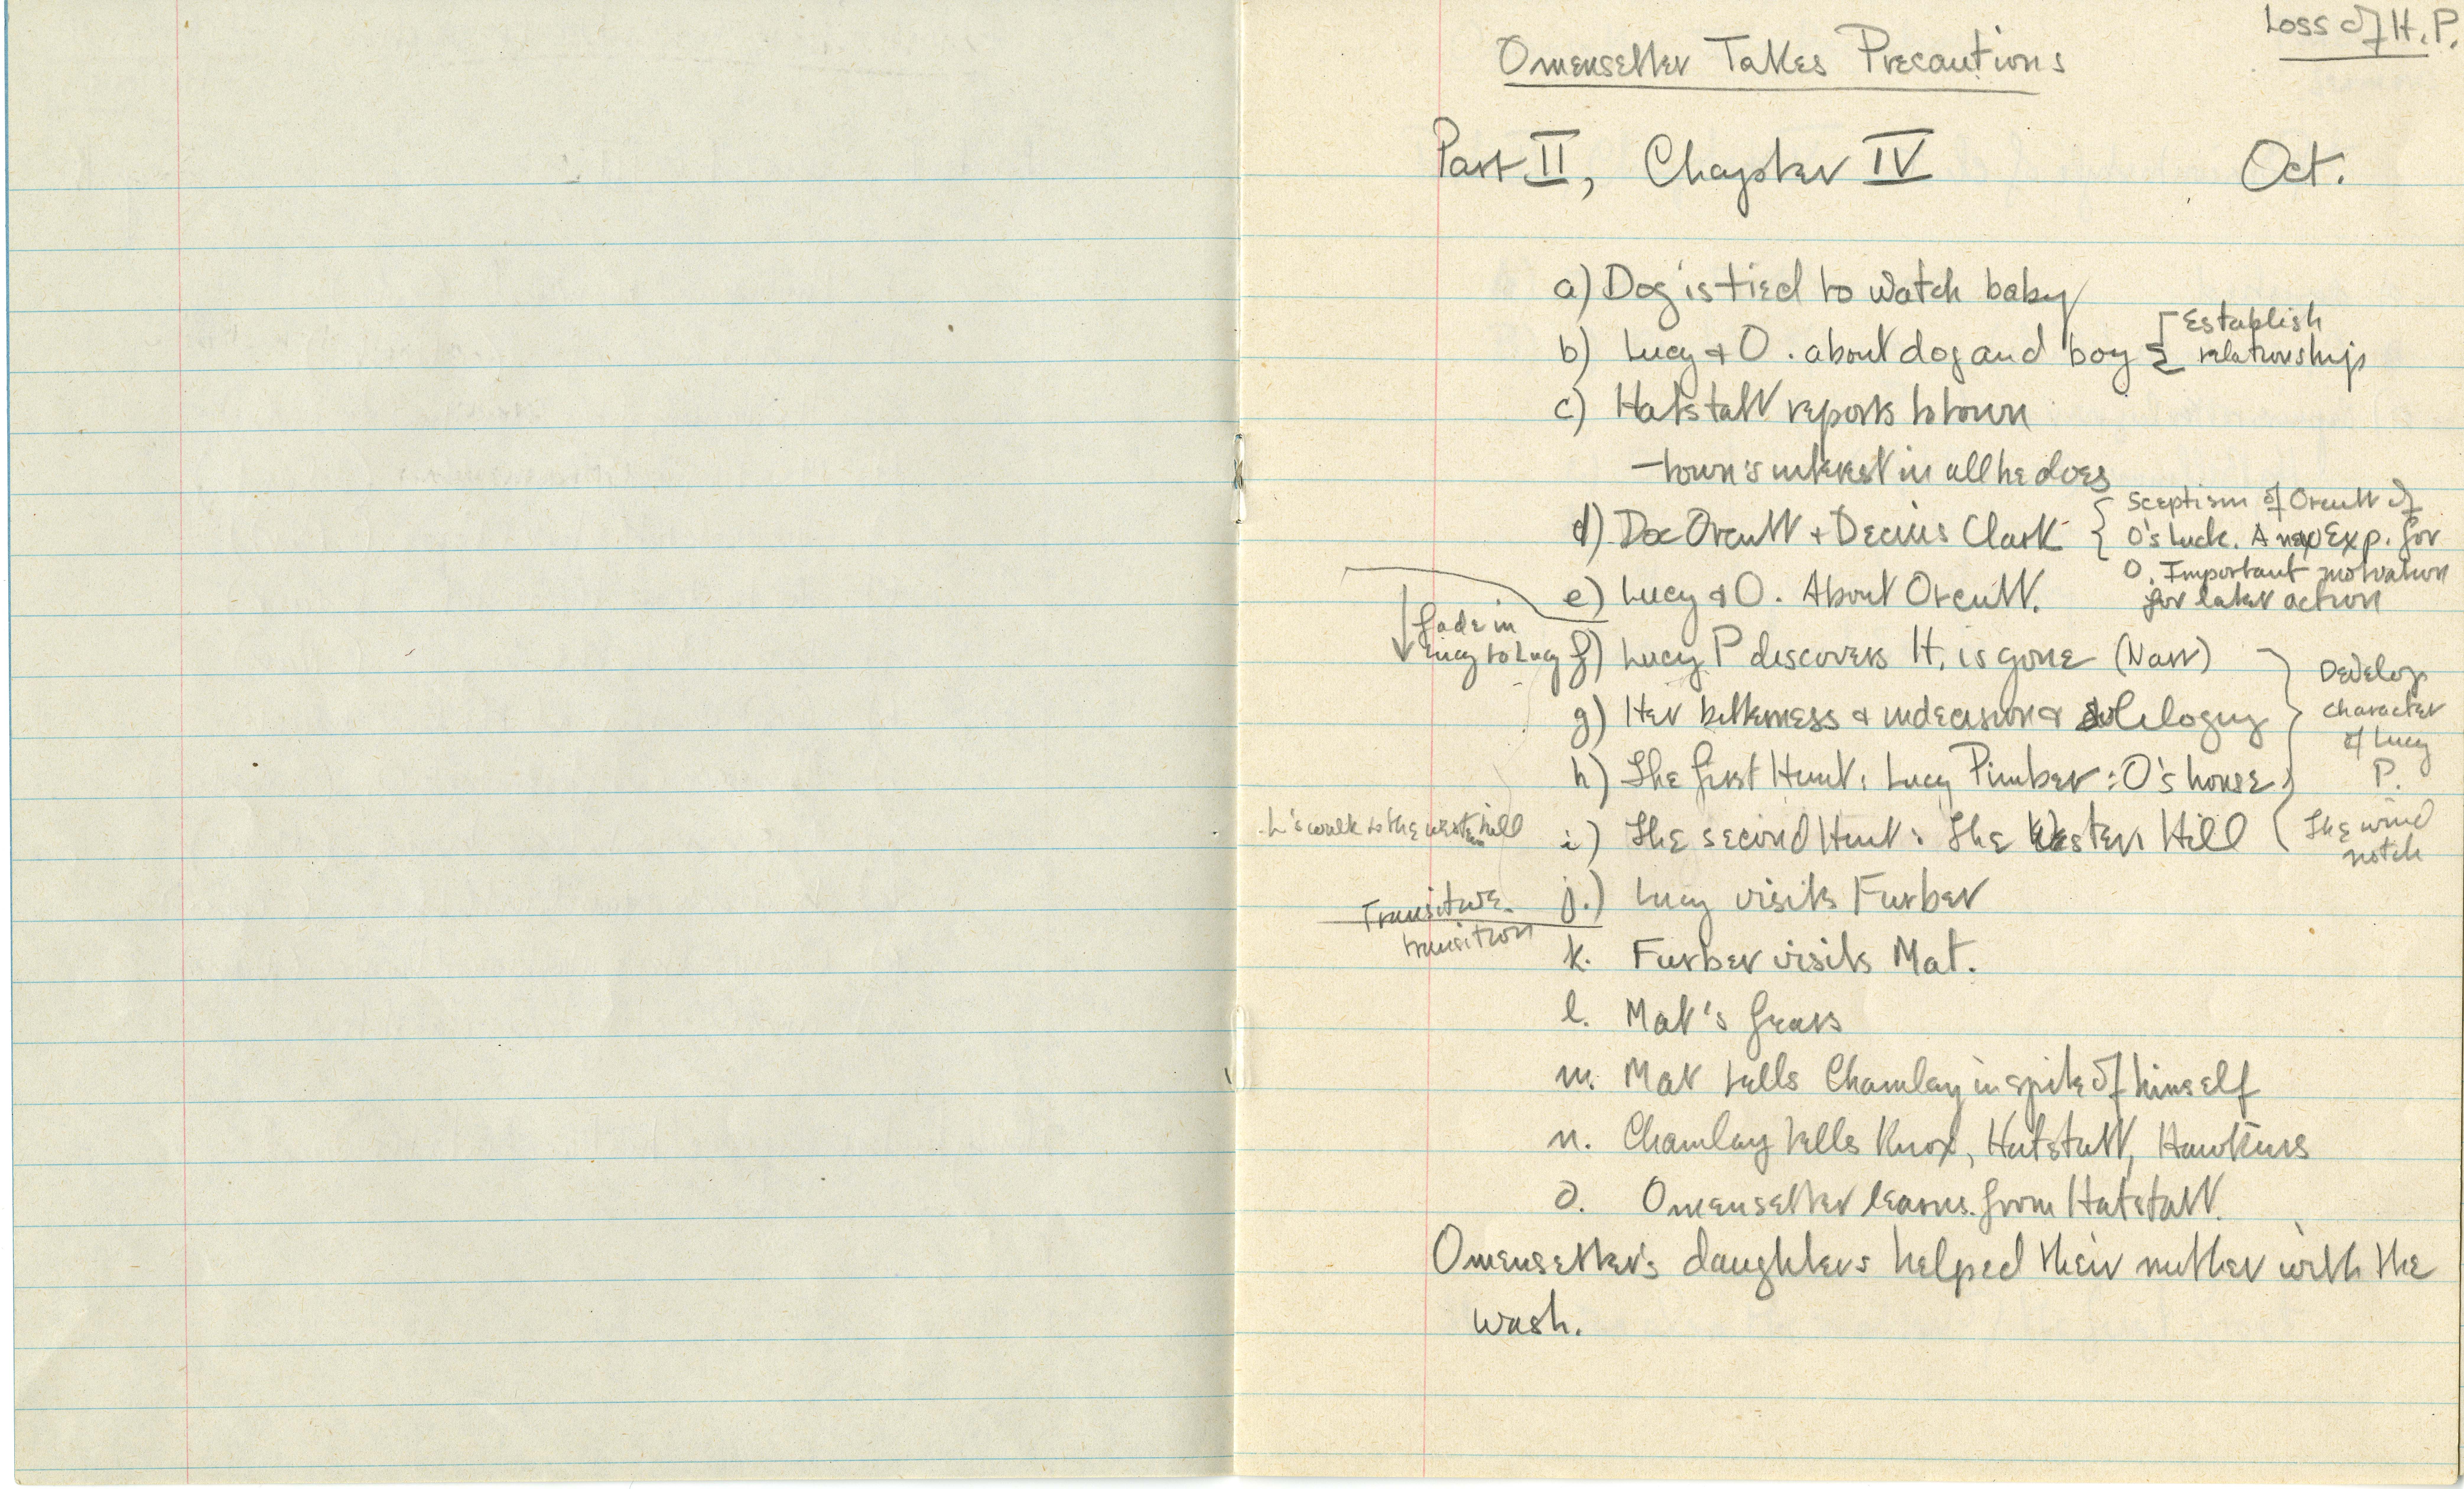 Loss of H.P.
Omensetter Takes Precautions
Part II, Chapter IV Oct.
a) Dog is tied to watch baby
b) Lucy + O. about dog and boy
Establish
relationship
c) Hatstatt reports to town
— town's interest in all he does
d) Doc Orcutt + Decius Clark
Sceptism of Orcutt of
O's Luck. A new Exp. for
O. Important motivation
for later action
e) Lucy + O. About Orcutt.
fade in
Lucy to Lucy
f) Lucy P discovers H. is gone (Narr)
g) Her bitterness & indecision & soliloquy
h) The first Hunt: Lucy Pimber: O's house
Develop
character
of Lucy
P.
L's walk to the western hill
i) The second Hunt: The Western Hill
The wind
notch
Transiture
transition
j.) Lucy visits Furber
k. Furber visits Mat.
l. Mat's fears
m. Mat tells Chamlay in spite of himself
n. Chamlay tells Knox, Hatstatt, Hawkins
o. Omensetter learns from Hatstatt.
Omensetter's daughters helped their mother with the
wash.